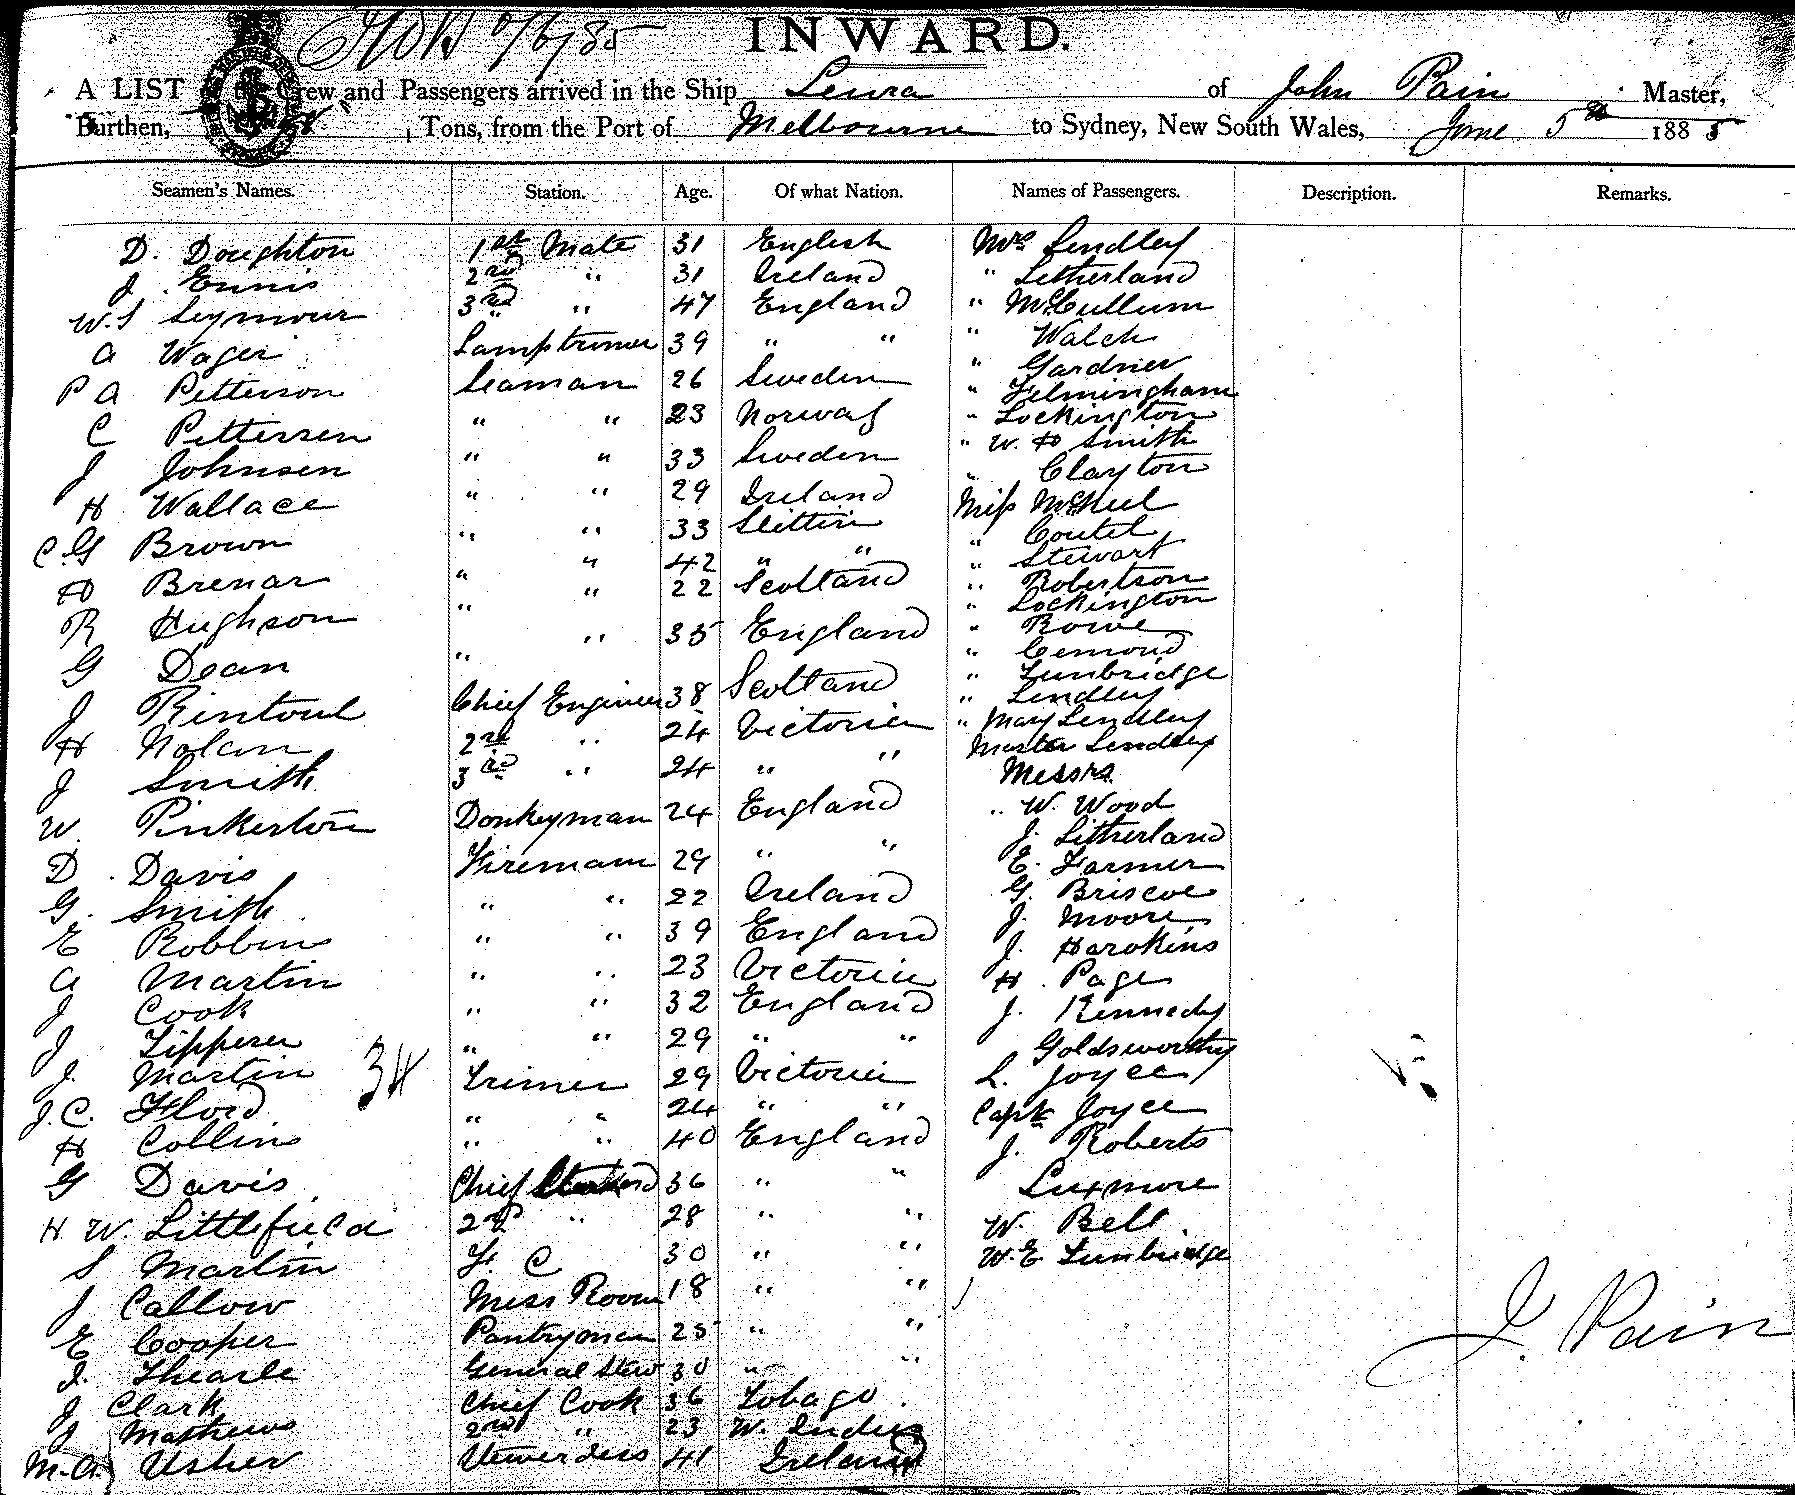 6/85
INWARD.
A LIST Crew and Passengers arrived in the Ship Leura of John Pain Master,
Burthen, Tons, from the Port of Melbourne to Sydney, New South Wales, June 5th 1885
Seamen's Names. Station. Age. Of what Nation. Names of Passengers. Description. Remarks.
D. Doughton 1st Mate 31 English Mrs Lendley
J. Ennis 2nd " 31 Ireland " Litherland
W.S Seymour 3rd " 47 England " McCullum
A Wager Lamptrimer 39 " " " Walch
P A Petterson Seaman 26 Sweden " Gardner
" Felmingham
C Petterson " " 23 Norway " Lockington
J Johnsen " " 33 Sweden " W. H Smith
H Wallace " " 29 Ireland " Clayton
C.G Brown " " 33 Miss McNeil
H Brenar " " 42 " " " Coutel
R Hughson " " 22 Scotland " Stewart
G Dean " " 35 England " Robertson
" Lockington
" Rowe
"
" Tunbridge
J Rintoul Chief Engineer 38 Scotland " Lendley
H Nolan 2nd " 24 Victoria " May Lendley
J Smith 3rd " 24 " " Master Lendley
Messrs
W. Pinkerton Donkeyman 24 England " W. Wood
D. Davis Fireman 29 " " J. Litherland
G. Smith " " 22 Ireland E. Farmer
E Robbins " " 39 England G. Briscoe
A Martin " " 23 Victoria J. Moore
J Cook " " 32 England J. Harokins
J Tipperer " " 29 " " H. Page
J. Martin 34 Trimer 29 Victoria J. Kennedy
J.C. Flood " " 24 " " Goldsworthy
H Collins " " 40 England L. Joyce
G Davis Chief Steward 36 " " Capt Joyce
H W. Littlefield 2nd " 28 " " J. Roberts
S Martin F. C 30 " " Luxmore
J Callow Mess Room 18 " " W. Bell
E Cooper Pantryman 25 " " W.E Tunbridge
J. Thearle General Stew 30 " "
J Clark Chief Cook 36 Tobago
J Mathews 2nd " 23 W. Indies
M.A. Usher Stewerdess 41 Ireland
J. Pain